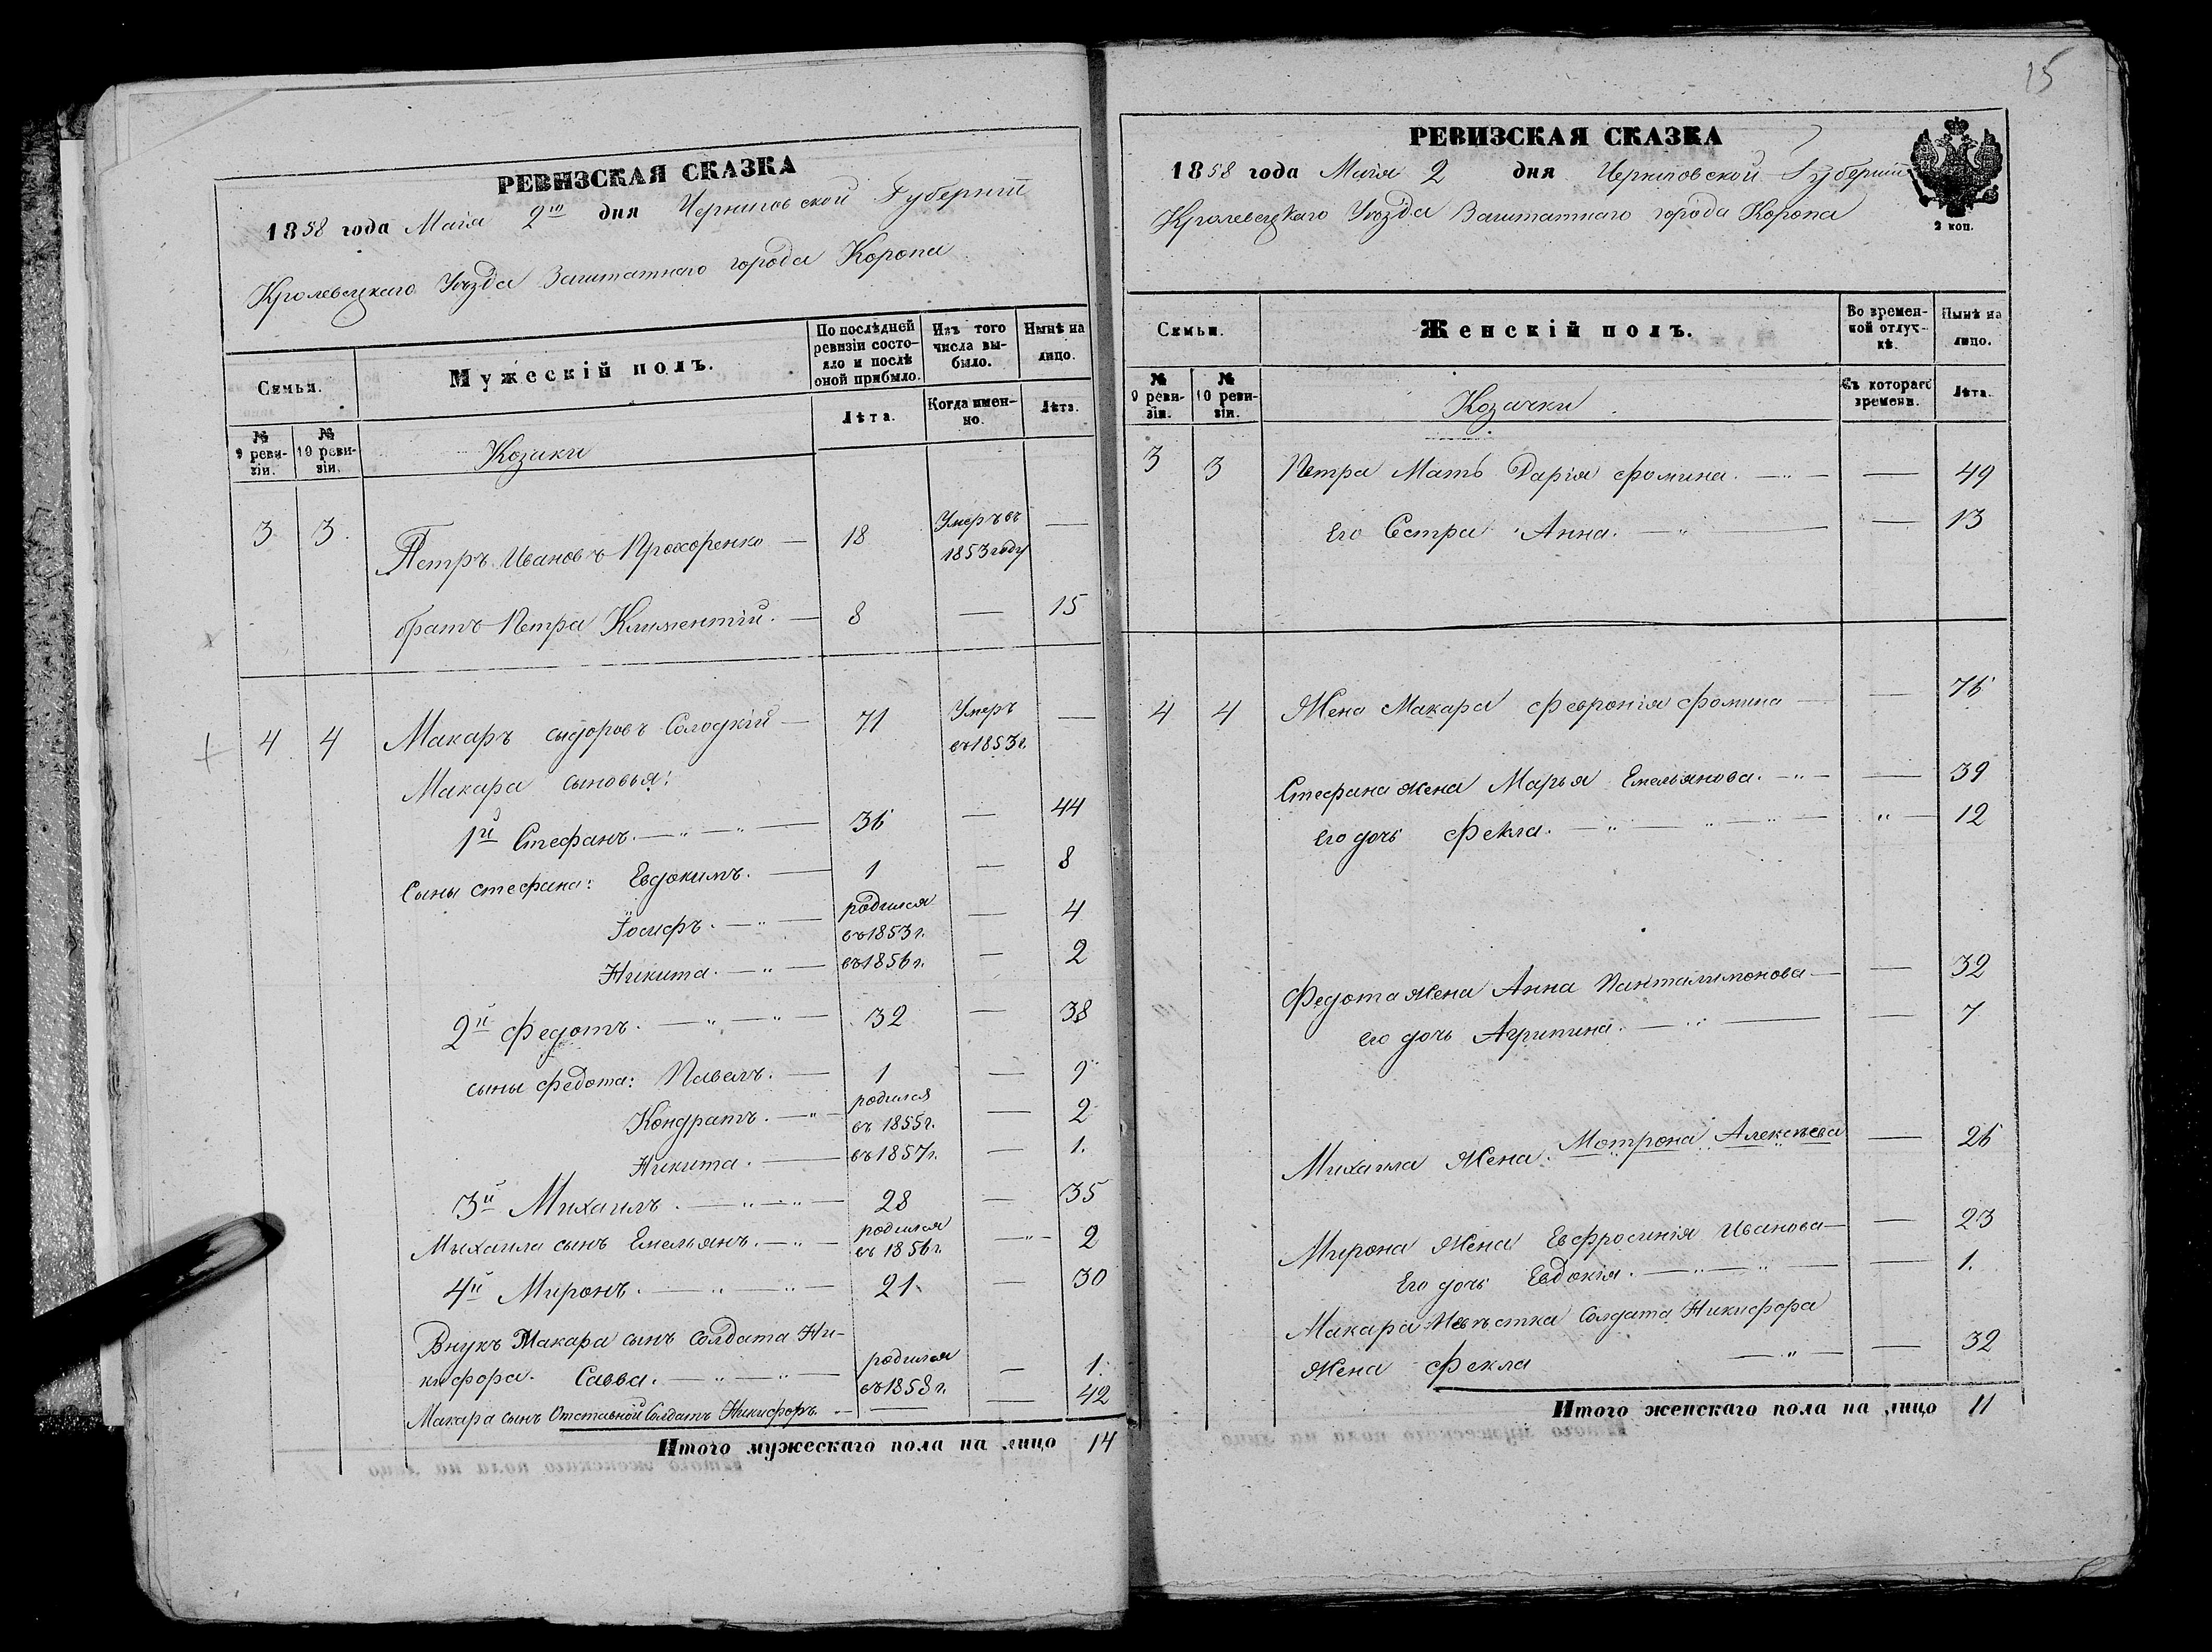 РЕВИЗСКАЯ СКАЗКА
1858 года Маія 2го дня Черниговской Губерніи
Кролевецкаго Уѣзда Заштатнаго города Коропа
Семьи.
Мужескій полъ.
По послѣдней ревизіи состояло и послѣ оной прибыло.
Изъ того числа выбыло.
Нынѣ на лицо.
№ 9 ревизіи.
№ 10 ревизіи.
Козаки
Лѣта.
Когда именно.
Лѣта.
3 3. Петръ Ивановъ Прохоренко — 18 Умеръ въ 1853 году —
братъ Петра Климентій. — 8 — 15
4 4 Макаръ сыдоровъ Солодкій — 71 Умеръ въ 1853 г. —
Макара сыновья:
1й Стефанъ. — „ — „ — 36 — 44
Сыны Стефана: Евдокимъ. — 1 — 8
Іосифъ. — „ — родился въ 1853 г. — 4
Никита. — „ — въ 1856 г. — 2
2й Федотъ. — „ — „ — 32 — 38
сыны Федота: Павелъ. — 1 — 9
Кондратъ. — „ — родился въ 1855 г. — 2
Никита. — въ 1857 г. — 1.
3й Михаилъ. — „ — „ — 28 — 35
Михаила сынъ Емельянъ. — „ — родился въ 1856 г. — „ — 2
4й Миронъ. — „ — „ — 21. — 30
Внукъ Макара сынъ Солдата Ни-
кифора. Савва. — „ — „ — родился въ 1858 г. — 1.
Макара сынъ Отставной Солдатъ Никифоръ. — — — 42
Итого мужескаго пола на лицо 14
15
РЕВИЗСКАЯ СКАЗКА
1858 года Маія 2 дня Черниговской Губерніи
Кролевецкаго Уѣзда Заштатнаго города Коропа
2 коп.
Семьи.
Женскій полъ.
Во временной отлучкѣ.
Нынѣ на лицо.
№ 9 ревизіи.
№ 10 ревизіи.
Козачки
Съ котораго времени.
Лѣта.
3 3 Петра Мать Дарія Фомина. — „ — — 49
Его Сестра Анна. — „ — — 13
4 4 Жена Макара Февронія Фомина — — 76
Стефана жена Марья Емельянова. — „ — — 39
Его дочь Фекла. — „ — „ — „ — „ — 12
Федота жена Анна Панталимонова — — 32
его дочь Агрипина. — „ — — 7
Михаила Жена. Мотрона Алексѣева — 26
Мирона Жена Евфросинія Иванова — — 23
Его дочь Евдокія. — „ — „ — — 1.
Макара Невѣстка Солдата Никифора
Жена Фекла — „ — — 32
Итого женскаго пола на лицо 11